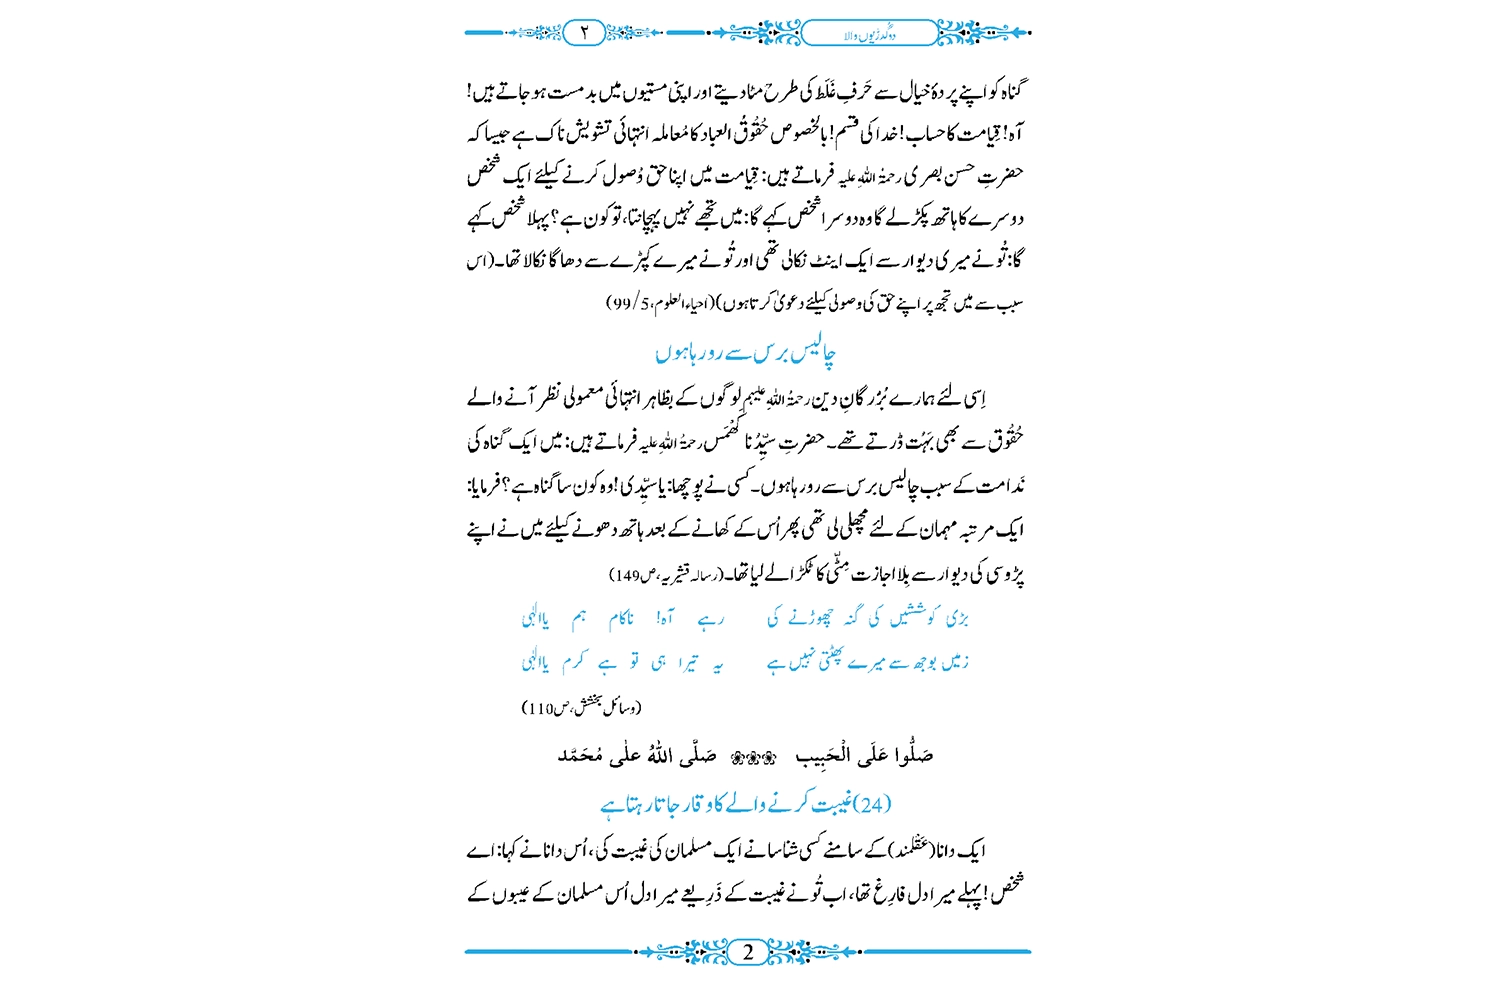 دو گُدڑیوں والا
۲
گناہ کو اپنے پردۂ خیال سے حَرفِ غَلَط کی طرح مٹادیتے اور اپنی مستیوں میں بدمست ہو جاتے ہیں!
آہ! قِیامت کا حساب! خدا کی قسم! بالخصوص حُقُوقُ العباد کا مُعاملہ انتہائی تشویش ناک ہے جیسا کہ
حضرتِ حسن بصری رحمۃُ اللہِ علیہ فرماتے ہیں: قِیامت میں اپنا حق وُصول کرنے کیلئے ایک شخص
دوسرے کا ہاتھ پکڑ لے گا وہ دوسرا شخص کہے گا: میں تجھے نہیں پہچانتا، تو کون ہے؟ پہلا شخص کہے
گا: تُونے میری دیوار سے ایک اینٹ نکالی تھی اور تُونے میرے کپڑے سے دھاگا نکالا تھا۔ (اس
سبب سے میں تجھ پر اپنے حق کی وصولی کیلئے دعویٰ کرتا ہوں) (احیاء العلوم، 5/99)
چالیس برس سے رو رہا ہوں
اِسی لئے ہمارے بُزُرگانِ دین رحمۃُ اللہِ علیہم لوگوں کے بظاہر انتہائی معمولی نظر آنے والے
حُقُوق سے بھی بَہُت ڈرتے تھے۔ حضرتِ سیِّدُنا کَھْمَس رحمۃُ اللہِ علیہ فرماتے ہیں: میں ایک گناہ کی
نَدامت کے سبب چالیس برس سے رو رہا ہوں۔ کسی نے پوچھا: یا سیِّدی! وہ کون سا گناہ ہے؟ فرمایا:
ایک مرتبہ مہمان کے لئے مچھلی لی تھی پھر اُس کے کھانے کے بعد ہاتھ دھونے کیلئے میں نے اپنے
پڑوسی کی دیوار سے بِلا اجازت مِٹّی کا ٹکڑا لے لیا تھا۔ (رسالہ قشیریہ، ص149)
بڑی کوششیں کی گنہ چھوڑنے کی رہے آہ! ناکام ہم یاالٰہی
زمیں بوجھ سے میرے پھٹتی نہیں ہے یہ تیرا ہی تو ہے کرم یاالٰہی
(وسائلِ بخشش، ص110)
صَلُّوا عَلَی الْحَبِیب ❀❀❀ صَلَّی اللہُ علٰی مُحَمَّد
(24) غیبت کرنے والے کا وقار جاتا رہتا ہے
ایک دانا (عَقْلمند) کے سامنے کسی شناسا نے ایک مسلمان کی غیبت کی، اُس دانا نے کہا: اے
شخص! پہلے میرا دل فارِغ تھا، اب تُو نے غیبت کے ذَرِیعے میرا دل اُس مسلمان کے عیبوں کے
2